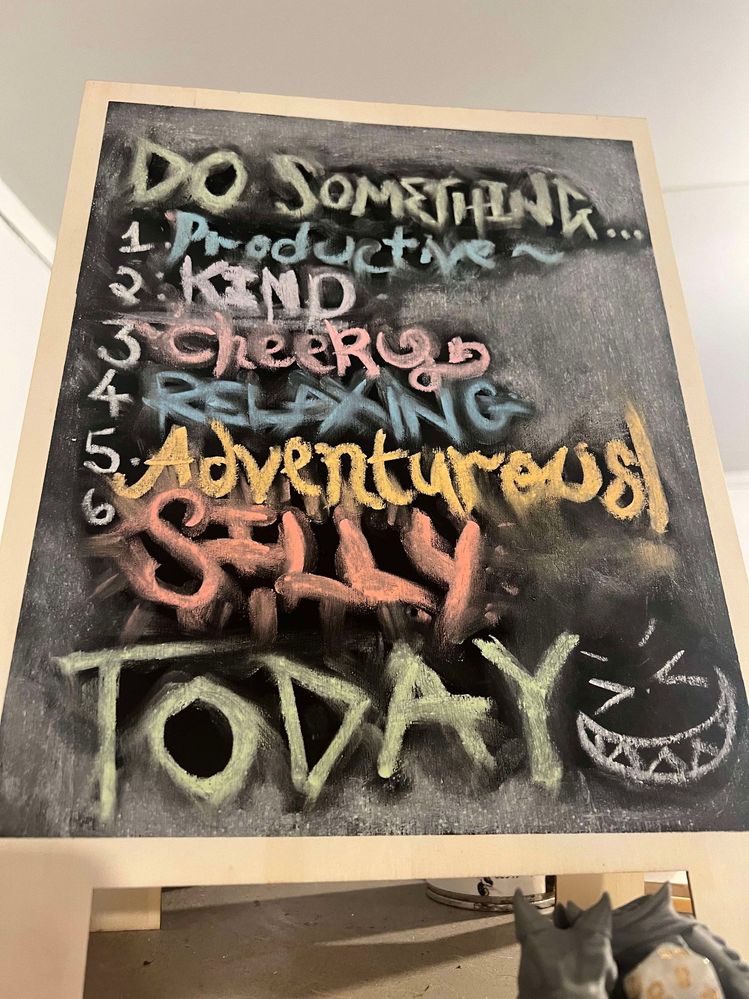 DO SOMETHING...
1. Productive ~
2. KIND
3 Cheeky
4 RELAXING
5. Adventurous
6 SILLY
TODAY